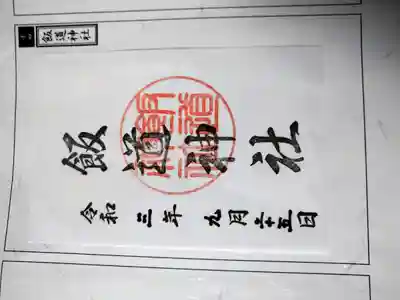 飯道神社
飯道神社
令和三年九月二十五日